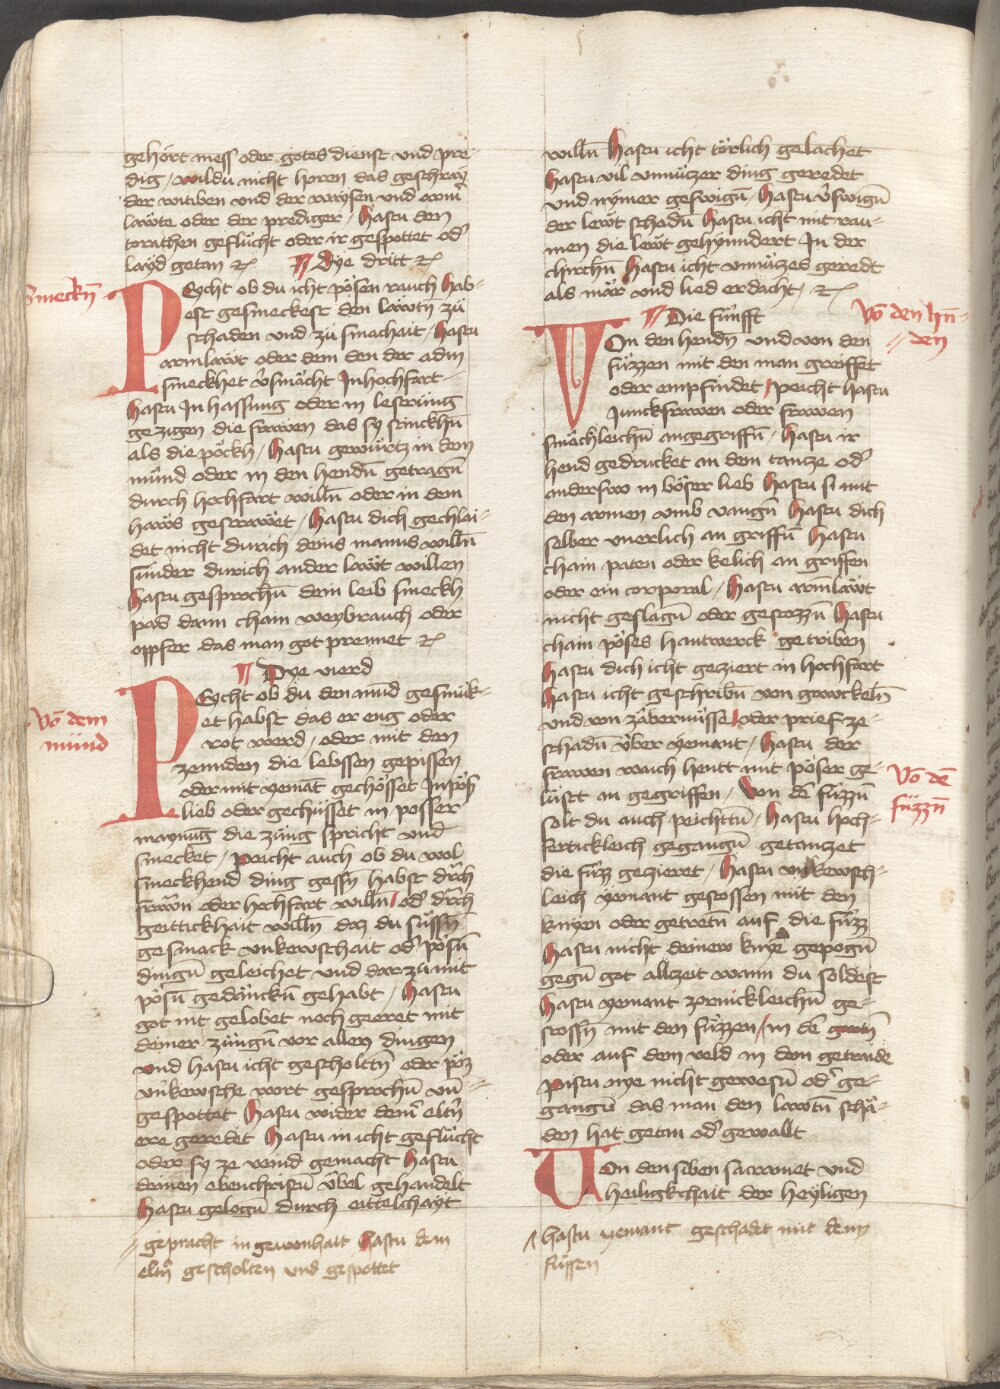 gehört mess oder gotes dienst vnd pre-
dig / wildu nicht horen das geschray
der witiben vnd der waysen vnd arm̄
läwte oder der prediger / Hastu den
torathen geflücht oder ir gespottet od'
layd getan ⁊c ¶ Dye dritt ⁊c
Smeckn̄
PEycht ob du icht pösen rauch hab-
est gesmeckest den läwtn̄ zü
schaden vnd zü smachait / Hastu
armläwt oder dem den der adm
smeckhet v̄smächt Jn hochfart
Hastu Jn hassung oder in lesrüng
gezigen die frawen das sy stinckhn̄
als die pöckh / Hastu gewürtz in dem
münd oder in den hendn̄ getragn̄
durch hochfart willn̄ oder in dem
haws gestrawet / Hastu dich gechlai-
det nicht durich deins manns willn̄
sünder durich ander läwt willen
Hastu gesprochn̄ dein leib smeckh
pas dann chain weyhrauch oder
oppfer das man got prennet ⁊c
¶ Dye vierd
Vō dem
münd
PEycht ob du den mūd gesmük-
et habst das er eng oder
rot werd / oder mit den
zennden die lebssen gepissen
oder mit yemāt gechösset Jn pös̄
lieb oder gechüsset in posser
maynūg die züng spricht vnd
smecket / peicht auch ob du wol
smeckhend ding gessn̄ habst dūrch
frawn̄ oder hochfart willn̄ / od' dūrch
geittickhait willn̄ do du süssn̄
gesmack vnkewschait od' pösn̄
dingn̄ geleichet vnd dar zu mit
pösn̄ gedänckn̄ gehabt / Hastu
got nit gelobet noch geeret mit
deiner züngn̄ vor allen dingen
vnd hastu icht gescholttn̄ oder pöz
vnkewsche wort gesprochn̄ vn̄
gespottet Hastu wider dein' eltn̄
ere geredet Hastu in icht geflücht
oder sy ze veind gemacht Hastu
deinen ebenchristn̄ übel gehandelt
Hastu gelogn̄ durch eittelchayt
gepracht in gewonhait Hastu dein
eltn̄ gescholten vnd gespottet
willn̄ Hastu icht törlich gelachet
Hastu vil vnnützer ding geredet
vnd nymer geswign̄ / Hastu v̄swign̄
der lewt schadn̄ Hastu icht mit rau-
nen die lewt gehynndert Jn der
chirchn̄ Hastu icht vnnützes geredt
als mär vnd lied erdacht / ⁊c
¶ Die fünfft
Vō den hn̄-
den
VOn den hendn̄ vnd von den
füzzen mit den man greiffet
oder empfindet / peicht hastu
Junckfrawen oder frawen
smächleichn̄ angegriffn̄ / Hastu ir
hend gedrucket an dem tanze od'
anderswo in böser lieb Hastu si mit
den armen vmb vangn̄ Hastu dich
selber vnerlich an griffn̄ Hastu
chain paten oder kelich an griffen
oder ein corporal / Hastu armläwt
nicht geslagn̄ oder gestozzn̄ Hastu
chain pöses hantwerck getriben
Hastu dich icht geziert in hochfart
Hastu icht geschribn̄ von gawckeln̄
vnd von zäbernüsse / oder prief ze-
schadn̄ über yemant / Hastu der
frawen waich hewt mit pöser ge-
lüst an gegriffen / Von dē füzzn̄
Vō dē
füzzn̄
solt du auch peichttn̄ / Hastu hoch-
fertickleich gegangn̄ getanzet
die füzz gezieret / Hastu vnkewsch-
leich yemant gestossen mit den
knyen oder getretn̄ auf die füzz
Hastu nicht deinew knye gepogn̄
gegn̄ got allzeit wann du soldest
Hastu yemant zornickleichn̄ ge-
stossn̄ mit den füzzen / in dē gartn̄
oder auf dem veld in dem getraide
pistu nye nicht gewesn̄ od' ge-
gangn̄ das man den lawtn̄ schä-
den hat getan od' gewallt
VOn den siben sacramēt vnd
heiligkchait der heyligen
hastu yemant geschadet mit dein
füssen